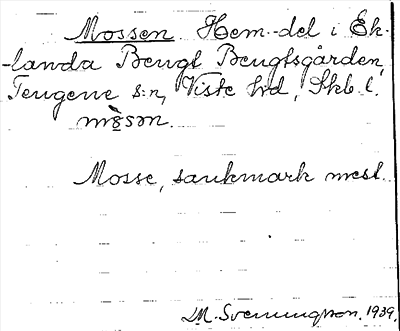 Mossen. Hem.-del i Ek-
-landa Bengt Bengtsgården,
Tengene s:n, Viste hd, Skb. l.
mòsən.
Mosse, sankmark mest.
M. Svenningson. 1939.